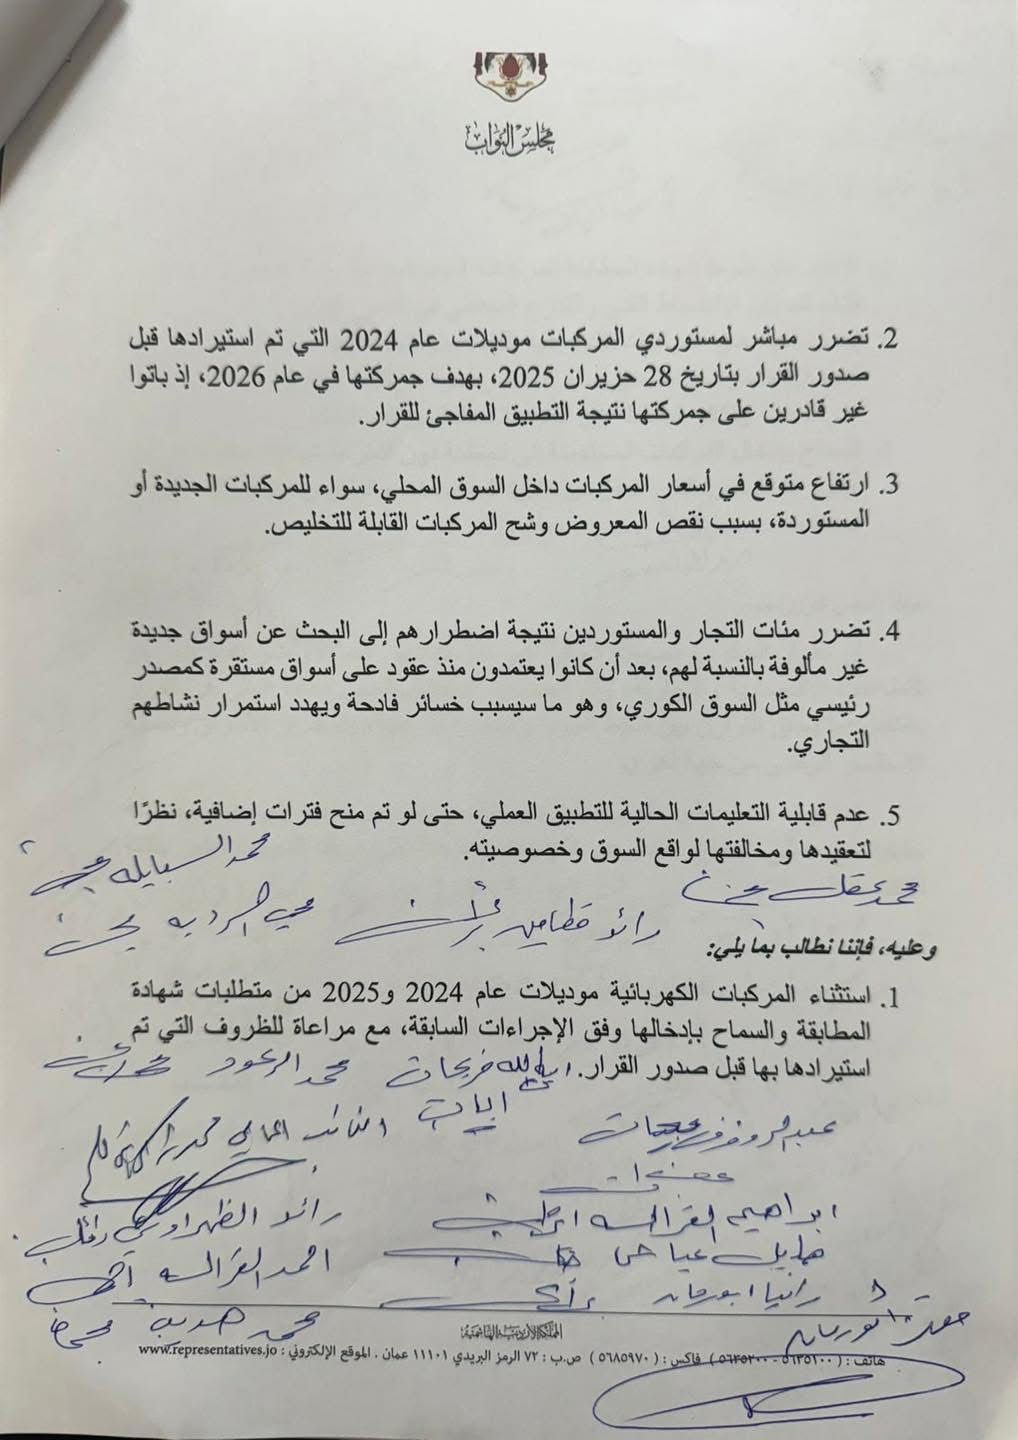 مجلس النواب
2. تضرر مباشر لمستوردي المركبات موديلات عام 2024 التي تم استيرادها قبل
صدور القرار بتاريخ 28 حزيران 2025، بهدف جمركتها في عام 2026، إذ باتوا
غير قادرين على جمركتها نتيجة التطبيق المفاجئ للقرار.
3. ارتفاع متوقع في أسعار المركبات داخل السوق المحلي، سواء للمركبات الجديدة أو
المستوردة، بسبب نقص المعروض وشح المركبات القابلة للتخليص.
4. تضرر مئات التجار والمستوردين نتيجة اضطرارهم إلى البحث عن أسواق جديدة
غير مألوفة بالنسبة لهم، بعد أن كانوا يعتمدون منذ عقود على أسواق مستقرة كمصدر
رئيسي مثل السوق الكوري، وهو ما سيسبب خسائر فادحة ويهدد استمرار نشاطهم
التجاري.
5. عدم قابلية التعليمات الحالية للتطبيق العملي، حتى لو تم منح فترات إضافية، نظرًا
لتعقيدها ومخالفتها لواقع السوق وخصوصيته.
محمد السبايله
محمد عقل
رائد قطامين
وعليه، فإننا نطالب بما يلي:
1. استثناء المركبات الكهربائية موديلات عام 2024 و2025 من متطلبات شهادة
المطابقة والسماح بإدخالها وفق الإجراءات السابقة، مع مراعاة للظروف التي تم
استيرادها بها قبل صدور القرار.
فريحات
ابراهيم القرالسه
رائد الظهراوي
هايل عياش
احمد القرالسه
رانيا ابورمان
محمد هديب
المملكة الأردنية الهاشمية
هاتف : ( ٥٦٣٥١٠٠ - ٥٦٣٥٢٠٠ ) فاكس : ( ٥٦٨٥٩٧٠ ) ص.ب : ٧٢ الرمز البريدي ١١١٠١ عمان . الموقع الإلكتروني : www.representatives.jo